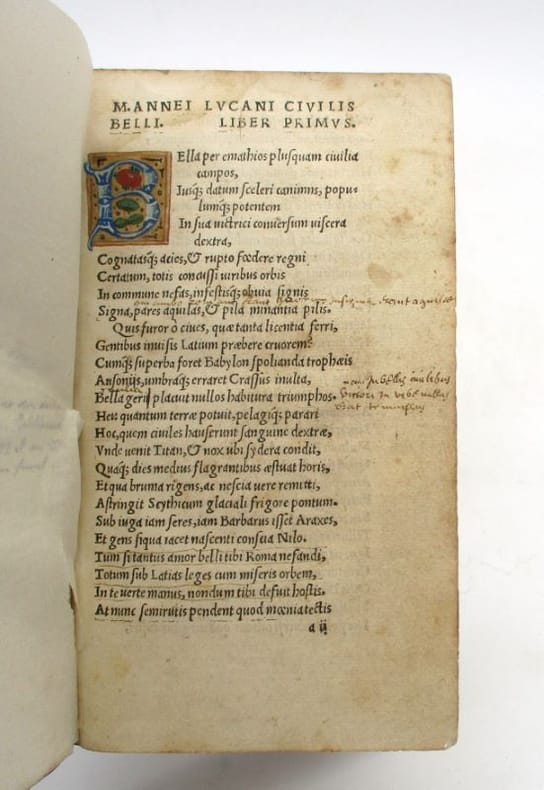 M. ANNEI LVCANI CIVILIS
BELLI. LIBER PRIMVS.
BElla per emathios plusquam ciuilia
campos,
Iusq; datum sceleri canimus, popu-
lumq; potentem
In sua uictrici conuersum uiscera
dextra,
Cognatasq; acies, & rupto foedere regni
Certatum, totis concussi uiribus orbis
In commune nefas, infestisq; obuia signis
Signa, pares aquilas, & pila minantia pilis.
Quis furor ò ciues, quæ tanta licentia ferri,
Gentibus inuisis Latium præbere cruorem?
Cumq; superba foret Babylon spolianda trophæis
Ausonijs, umbraq; erraret Crassus inulta,
Bella geri placuit nullos habitura triumphos.
Heu quantum terræ potuit, pelagiq; parari
Hoc, quem ciuiles hauserunt sanguine dextræ,
Vnde uenit Titan, & nox ubi sydera condit,
Quaq; dies medius flagrantibus æstuat horis,
Et qua bruma rigens, ac nescia uere remitti,
Astringit Scythicum glaciali frigore pontum.
Sub iuga iam seres, iam Barbarus isset Araxes,
Et gens siqua iacet nascenti conscia Nilo.
Tum si tantus amor belli tibi Roma nefandi,
Totum sub Latias leges cum miseris orbem,
In te uerte manus, nondum tibi defuit hostis.
At nunc semirutis pendent quod mœnia tectis
a ij